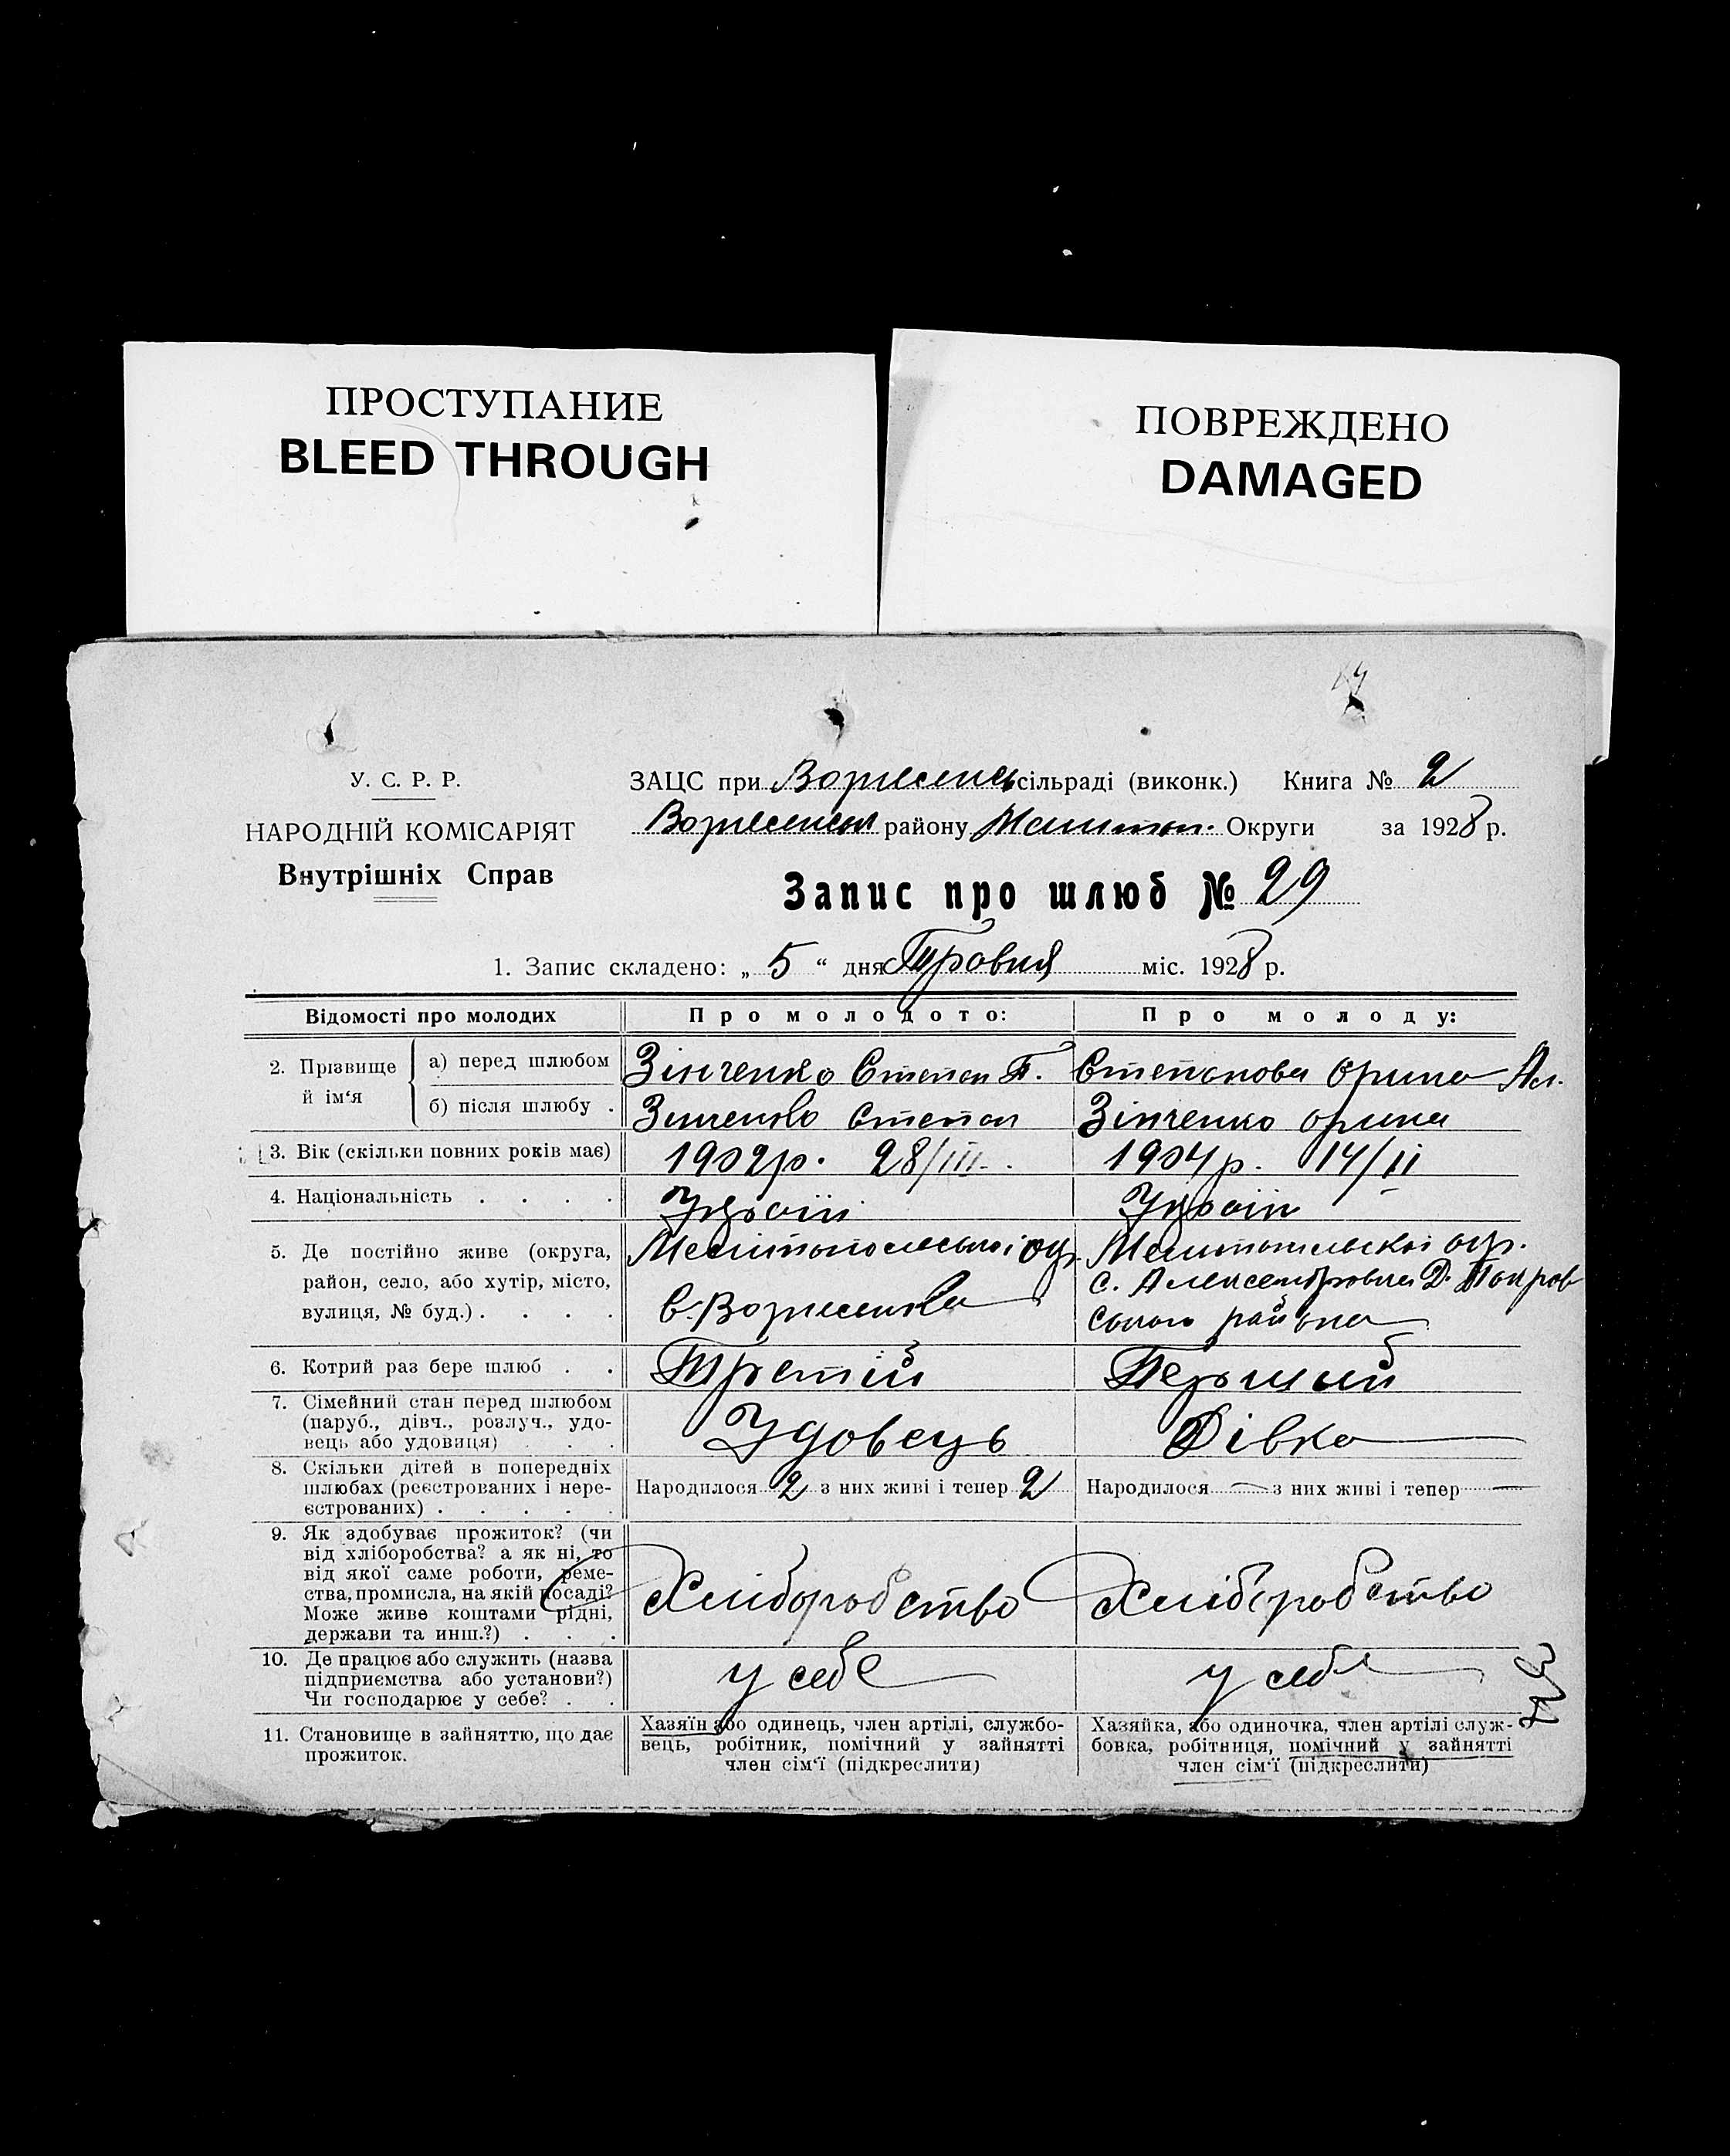 ПРОСТУПАНИЕ
BLEED THROUGH
ПОВРЕЖДЕНО
DAMAGED
У. С. Р. Р.
НАРОДНІЙ КОМІСАРІЯТ
Внутрішніх Справ
ЗАЦС при Вознесенсь сільраді (виконк.) Книга № 2
Вознесенськ району Мелитоп. Округи за 1928 р.
Запис про шлюб № 29
1. Запис складено: „ 5 “ дня Травня міс. 1928 р.
Відомості про молодих
Про молодого:
Про молоду:
2. Прізвище й ім‘я
а) перед шлюбом
Зінченко Степан П.
Степанова Орина Ал.
б) після шлюбу .
Зинченко Степан
Зінченко Орина
3. Вік (скільки повних років має)
1902р. 28/III.
1904р. 14/II
4. Національність . . . .
Україн
Україн
5. Де постійно живе (округа,
район, село, або хутір, місто,
вулиця, № буд.) . . . .
Мелітопольської окр.
с. Вознесенка
Мелитопільскої окр.
с. Александровка Д. Покров
ського района
6. Котрий раз бере шлюб . .
Третій
Перший
7. Сімейний стан перед шлюбом
(паруб., дівч., розлуч., удо-
вець або удовиця) . . .
Удовець
Дівка
8. Скільки дітей в попередніх
шлюбах (реєстрованих і нере-
єстрованих) . . . . .
Народилося 2 з них живі і тепер 2
Народилося — з них живі і тепер —
9. Як здобуває прожиток? (чи
від хліборобства? а як ні, то
від якої саме роботи, реме-
ства, промисла, на якій посаді?
Може живе коштами рідні,
держави та инш.?) . . .
Хліборобство
Хліборобство
10. Де працює або служить (назва
підприємства або установи?)
Чи господарює у себе? . .
у себе
у себе
11. Становище в зайняттю, що дає
прожиток.
Хазяїн або одинець, член артілі, службо-
вець, робітник, помічний у зайнятті
член сім‘ї (підкреслити)
Хазяйка, або одиночка, член артілі служ-
бовка, робітниця, помічний у зайнятті
член сім‘ї (підкреслити)